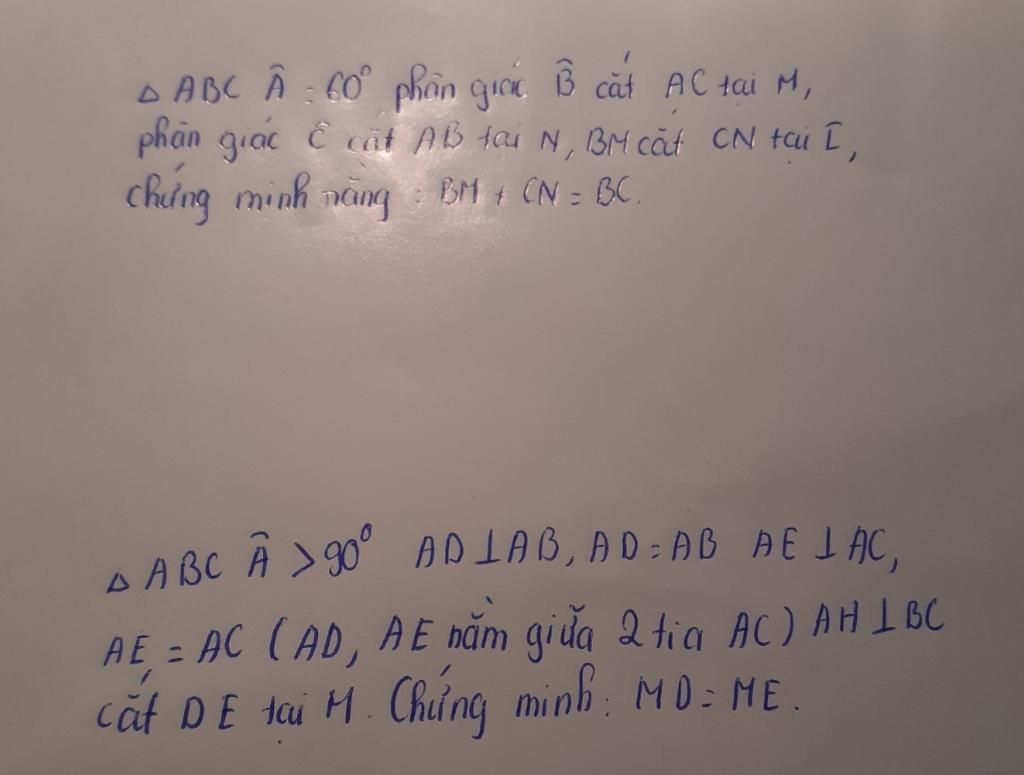 Δ ABC Â = 60° phân giác B̂ cắt AC tại M,
phân giác Ĉ cắt AB tại N, BM cắt CN tại I,
chứng minh rằng : BM + CN = BC.
Δ ABC Â > 90° AD⊥AB, AD = AB AE ⊥ AC,
AE = AC (AD, AE nằm giữa 2 tia AC) AH ⊥ BC
cắt DE tại M. Chứng minh: MD = ME.